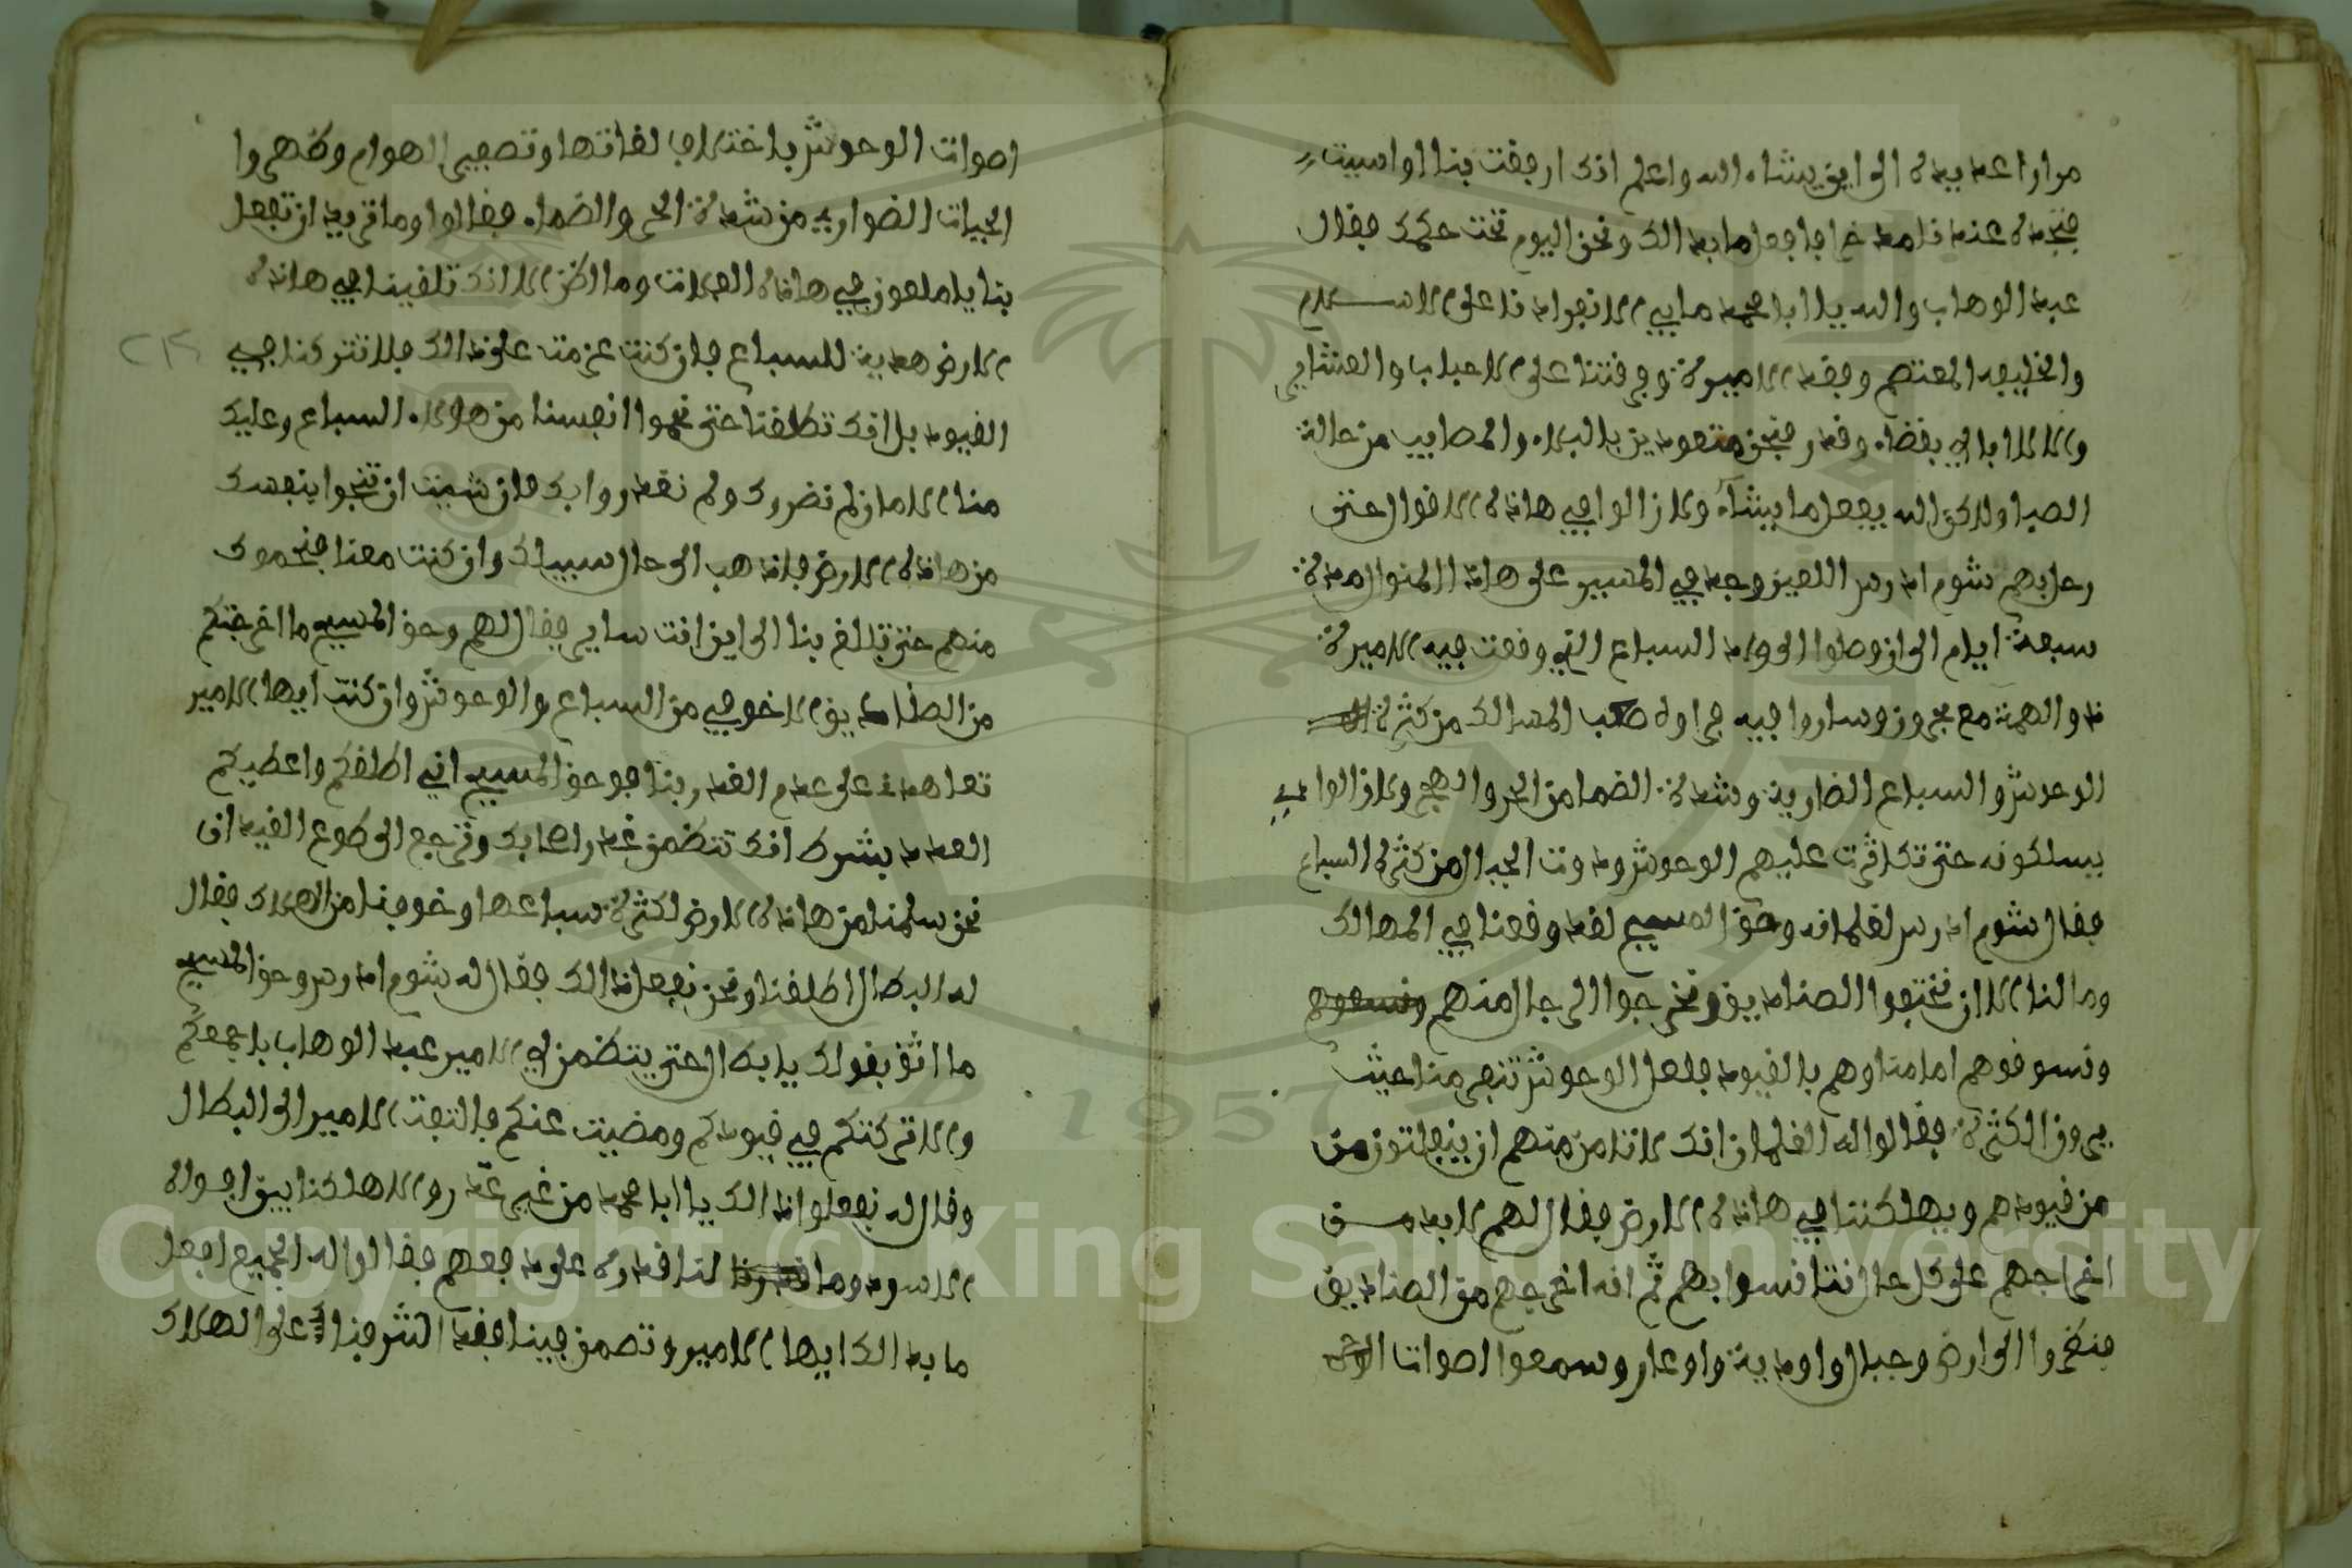 مرارا عديدة الى اين يشاء الله واعلم انك ارفقت بنا او اسيت
فنجدة عند فامد خرا فافعل ما بدا لك ونحن اليوم تحت حكمك فقال
عبد الوهاب والله يا ابا محمد ما بي الانفراد نا على الاسلام
والخليفه المعتصم وفقد الاميرة وفرقتنا على الاحباب والعشاير
والا لا ابالي بقضاء وقدر فنحن متعودين بالبلاء والمصايب من حالة
الصبا ولاكن الله يفعل ما يشاء ولا زالوا في هاذه الاقوال حتى
رحل بهم شوم ادرس اللعين وجد في المسير على هاذا المنوال مدة
سبعة ايام الى ان وصلوا الى واد السباع التي وقعت فيه الاميرة
ذو الهمة مع مجرون وساروا فيه فراوه صعب المسالك من كثرة
الوحوش والسباع الضارية وشدة الضما من الحر والهجير ولا زالوا
يسلكونه حتى تكاثرت عليهم الوحوش ودوت الجبال من كثرة السباع
فقال شوم ادرس لغلمانه وحق المسيح لقد وقعنا في المهالك
وما لنا الا ان نفتحوا الصناديق ونخرجوا الرجال منهم
ونسوقوهم امامنا وهم بالقيود فلعل الوحوش تنفر منا حيث
يرون الكثرة فقالوا له الغلمان انك لا تامن منهم ان ينفلتون من
من قيودهم ويهلكننا في هاذه الارض فقال لهم لا بد من
اخراجهم على كل حال نتانسوا بهم ثم انه اخرجهم من الصناديق
فنظروا الى ارض وجبال واودية واوعار وسمعوا اصوات
اصوات الوحوش باختلاف لغاتها وتصفير الهوام وظهروا
الحيات الضواري من شدة الحر والضماء فقالوا وما تريد ان تفعل
بنا يا ملعون في هاذه الفلات وما اظن الا انك تلقينا في هاذه
الارض هدية للسباع فان كنت عزمت على ذالك فلا تتركنا في
القيود بل انك تطلقنا حتى نحموا انفسنا من هولاء السباع وعليك
منا الامان لم نضروك ولم نغدروا بك فان شيت ان تنجوا بنفسك
من هاذه الارض فاذهب الى حال سبيلك وان كنت معنا فنحموك
منهم حتى تبلغ بنا الى اين انت ساير فقال لهم وحق المسيح ما اخرجتكم
من الصناديق الا خوفي من السباع والوحوش وان كنت ايها الامير
تعاهدني على عدم الغدر بنا فوحق المسيح اني اطلقكم واعطيكم
العدد بشرط انك تتضمن غدر اصحابك وترجع الى طوع القيد ان
نحن سلمنا من هاذه الارض لكثرة سباعها وخوفنا من الهلاك فقال
له البطال اطلقنا ونحن نفعل ذالك فقال له شوم ادرس وحق المسيح
ما اثق بقولك يا بطال حتى يتضمن لي الامير عبد الوهاب باجمعكم
والا تركتكم في قيودكم ومضيت عنكم فالتفت الامير الى البطال
وقال له نفعلوا ذالك يا ابا محمد من غير غدر والا هلكنا بين افواه
الاسود وما لنا قدرة على دفعهم فقالوا له الجميع افعل
ما بدا لك ايها الامير وتضمن فينا فقد اشرفنا على الهلاك